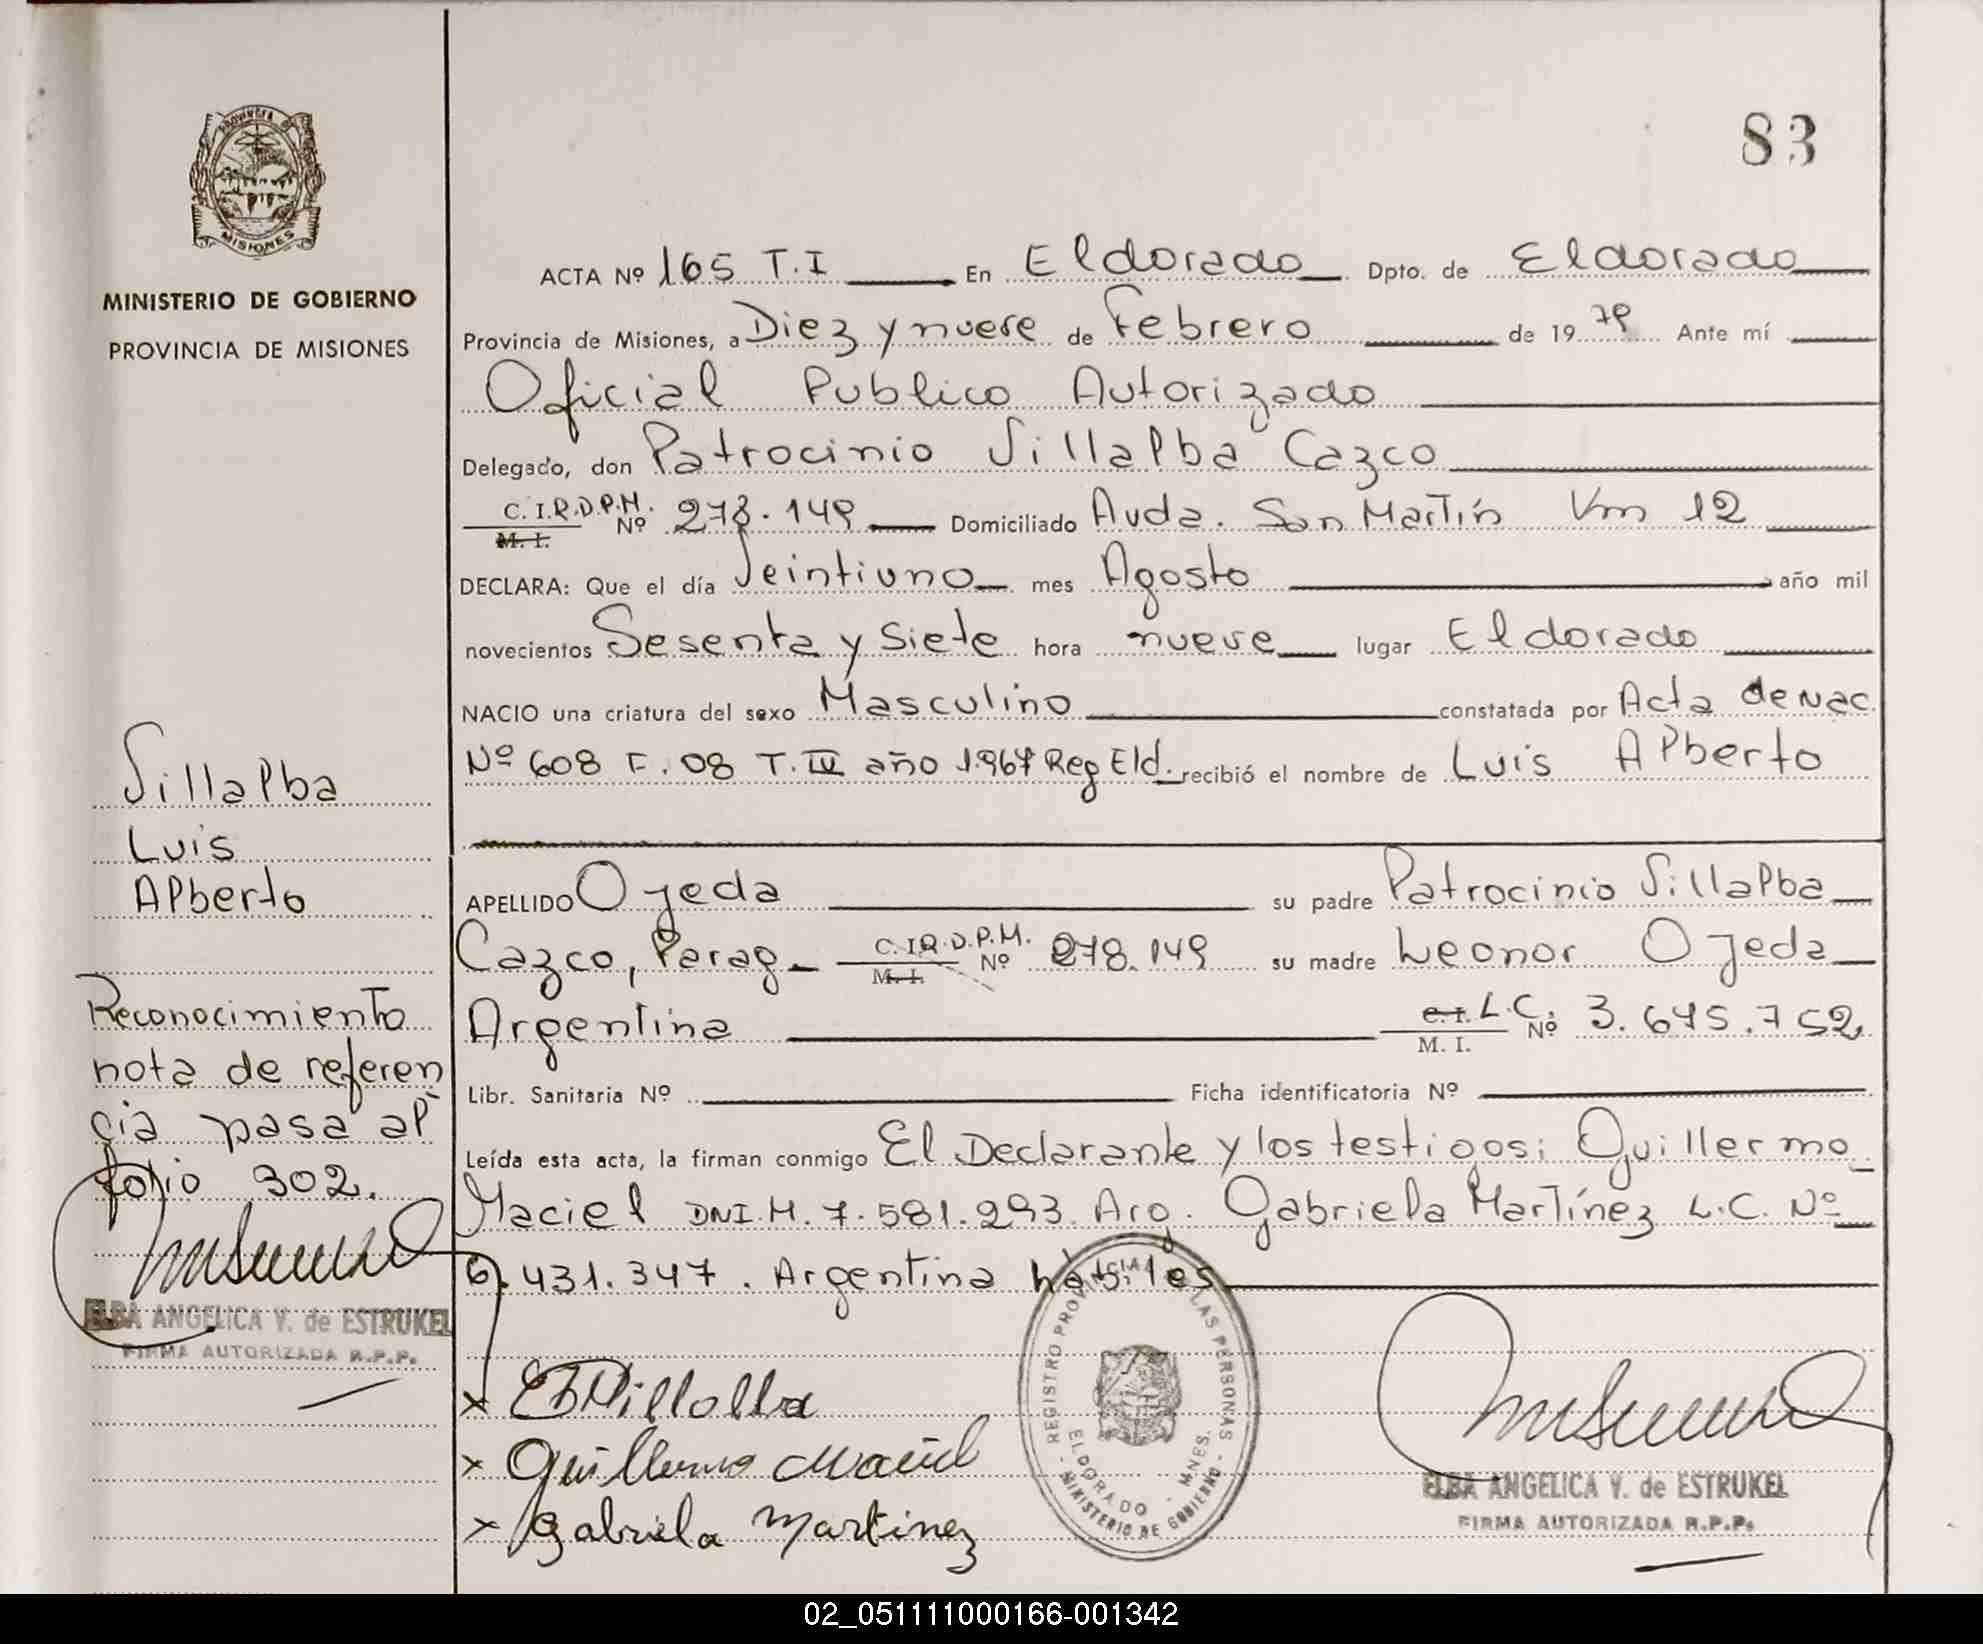 83
PROVINCIA DE
MISIONES
MINISTERIO DE GOBIERNO
PROVINCIA DE MISIONES
ACTA Nº 165 T.I En Eldorado Dpto. de Eldorado
Provincia de Misiones, a Diez y nueve de Febrero de 1979 Ante mí
Oficial Publico Autorizado
Delegado, don Patrocinio Villalba Cazco
C.I.R.D.P.M. M. I. Nº 278.149 Domiciliado Avda. San Martín Km 12
DECLARA: Que el día Veintiuno mes Agosto año mil
novecientos Sesenta y Siete hora nueve lugar Eldorado
NACIO una criatura del sexo Masculino constatada por Acta de Nac.
Nº 608 F. 08 T. III año 1967 Reg Eld. recibió el nombre de Luis Alberto
APELLIDO Ojeda su padre Patrocinio Villalba
Cazco, Parag. C.I.R.D.P.M. M. I. Nº 278.149 su madre Leonor Ojeda
Argentina C. I. L.C. M. I. Nº 3.645.752
Libr. Sanitaria Nº Ficha identificatoria Nº
Leída esta acta, la firman conmigo El Declarante y los testigos: Guillermo
Maciel DNI.M. 7.581.293. Arg. Gabriela Martínez L.C. Nº
6.431.347. Argentina hábiles
Villalba
Luis
Alberto
Reconocimiento
nota de referen
cia pasa al
folio 302.
ELBA ANGELICA V. de ESTRUKEL
FIRMA AUTORIZADA R.P.P.
Villalba
Guillermo Maciel
Gabriela Martinez
REGISTRO PROVINCIAL DE LAS PERSONAS
ELDORADO - MNES.
MINISTERIO DE GOBIERNO
ELBA ANGELICA V. de ESTRUKEL
FIRMA AUTORIZADA R.P.P.
02_051111000166-001342